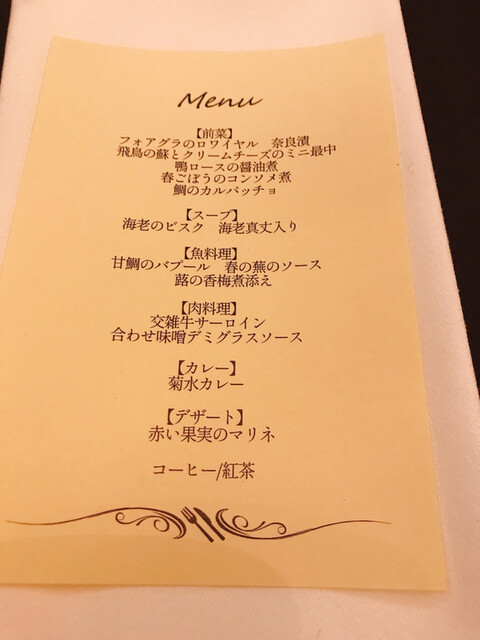 Menu
【前菜】
フォアグラのロワイヤル　奈良漬
飛鳥の蘇とクリームチーズのミニ最中
鴨ロースの醤油煮
春ごぼうのコンソメ煮
鯛のカルパッチョ
【スープ】
海老のビスク　海老真丈入り
【魚料理】
甘鯛のバプール　春の蕪のソース
蕗の香梅煮添え
【肉料理】
交雑牛サーロイン
合わせ味噌デミグラスソース
【カレー】
菊水カレー
【デザート】
赤い果実のマリネ
コーヒー/紅茶